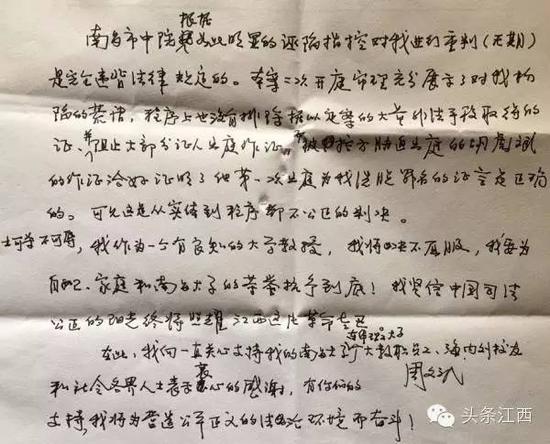 根据
南昌市中院如此明显的诬陷指控对我进行重判(无期)
是完全违背法律规定的。本案二次开庭审理充分展示了对我构
陷的荒诞,程序上也没有排除据以定案的大量非法手段取得的
证,并阻止大部分证人出庭作证,被控方胁迫出庭的胡彪斌
的作证恰好证明了他第一次出庭为我洗脱罪名的证言是正确
的。可见这是从实体到程序都不公正的判决。
士可杀不可辱,我作为一个有良知的大学教授,我将决不屈服,我要为
自己、家庭和南昌大学的荣誉抗争到底!我坚信中国司法
公正的阳光终将照耀江西这片革命老区
在此,我向一直关心支持我的南昌大学广大教职员工,海内外校友
和社会各界人士表示衷心的感谢,有你们的
周文斌
支持,我将为营造公平正义的法治环境而奋斗!
头条江西